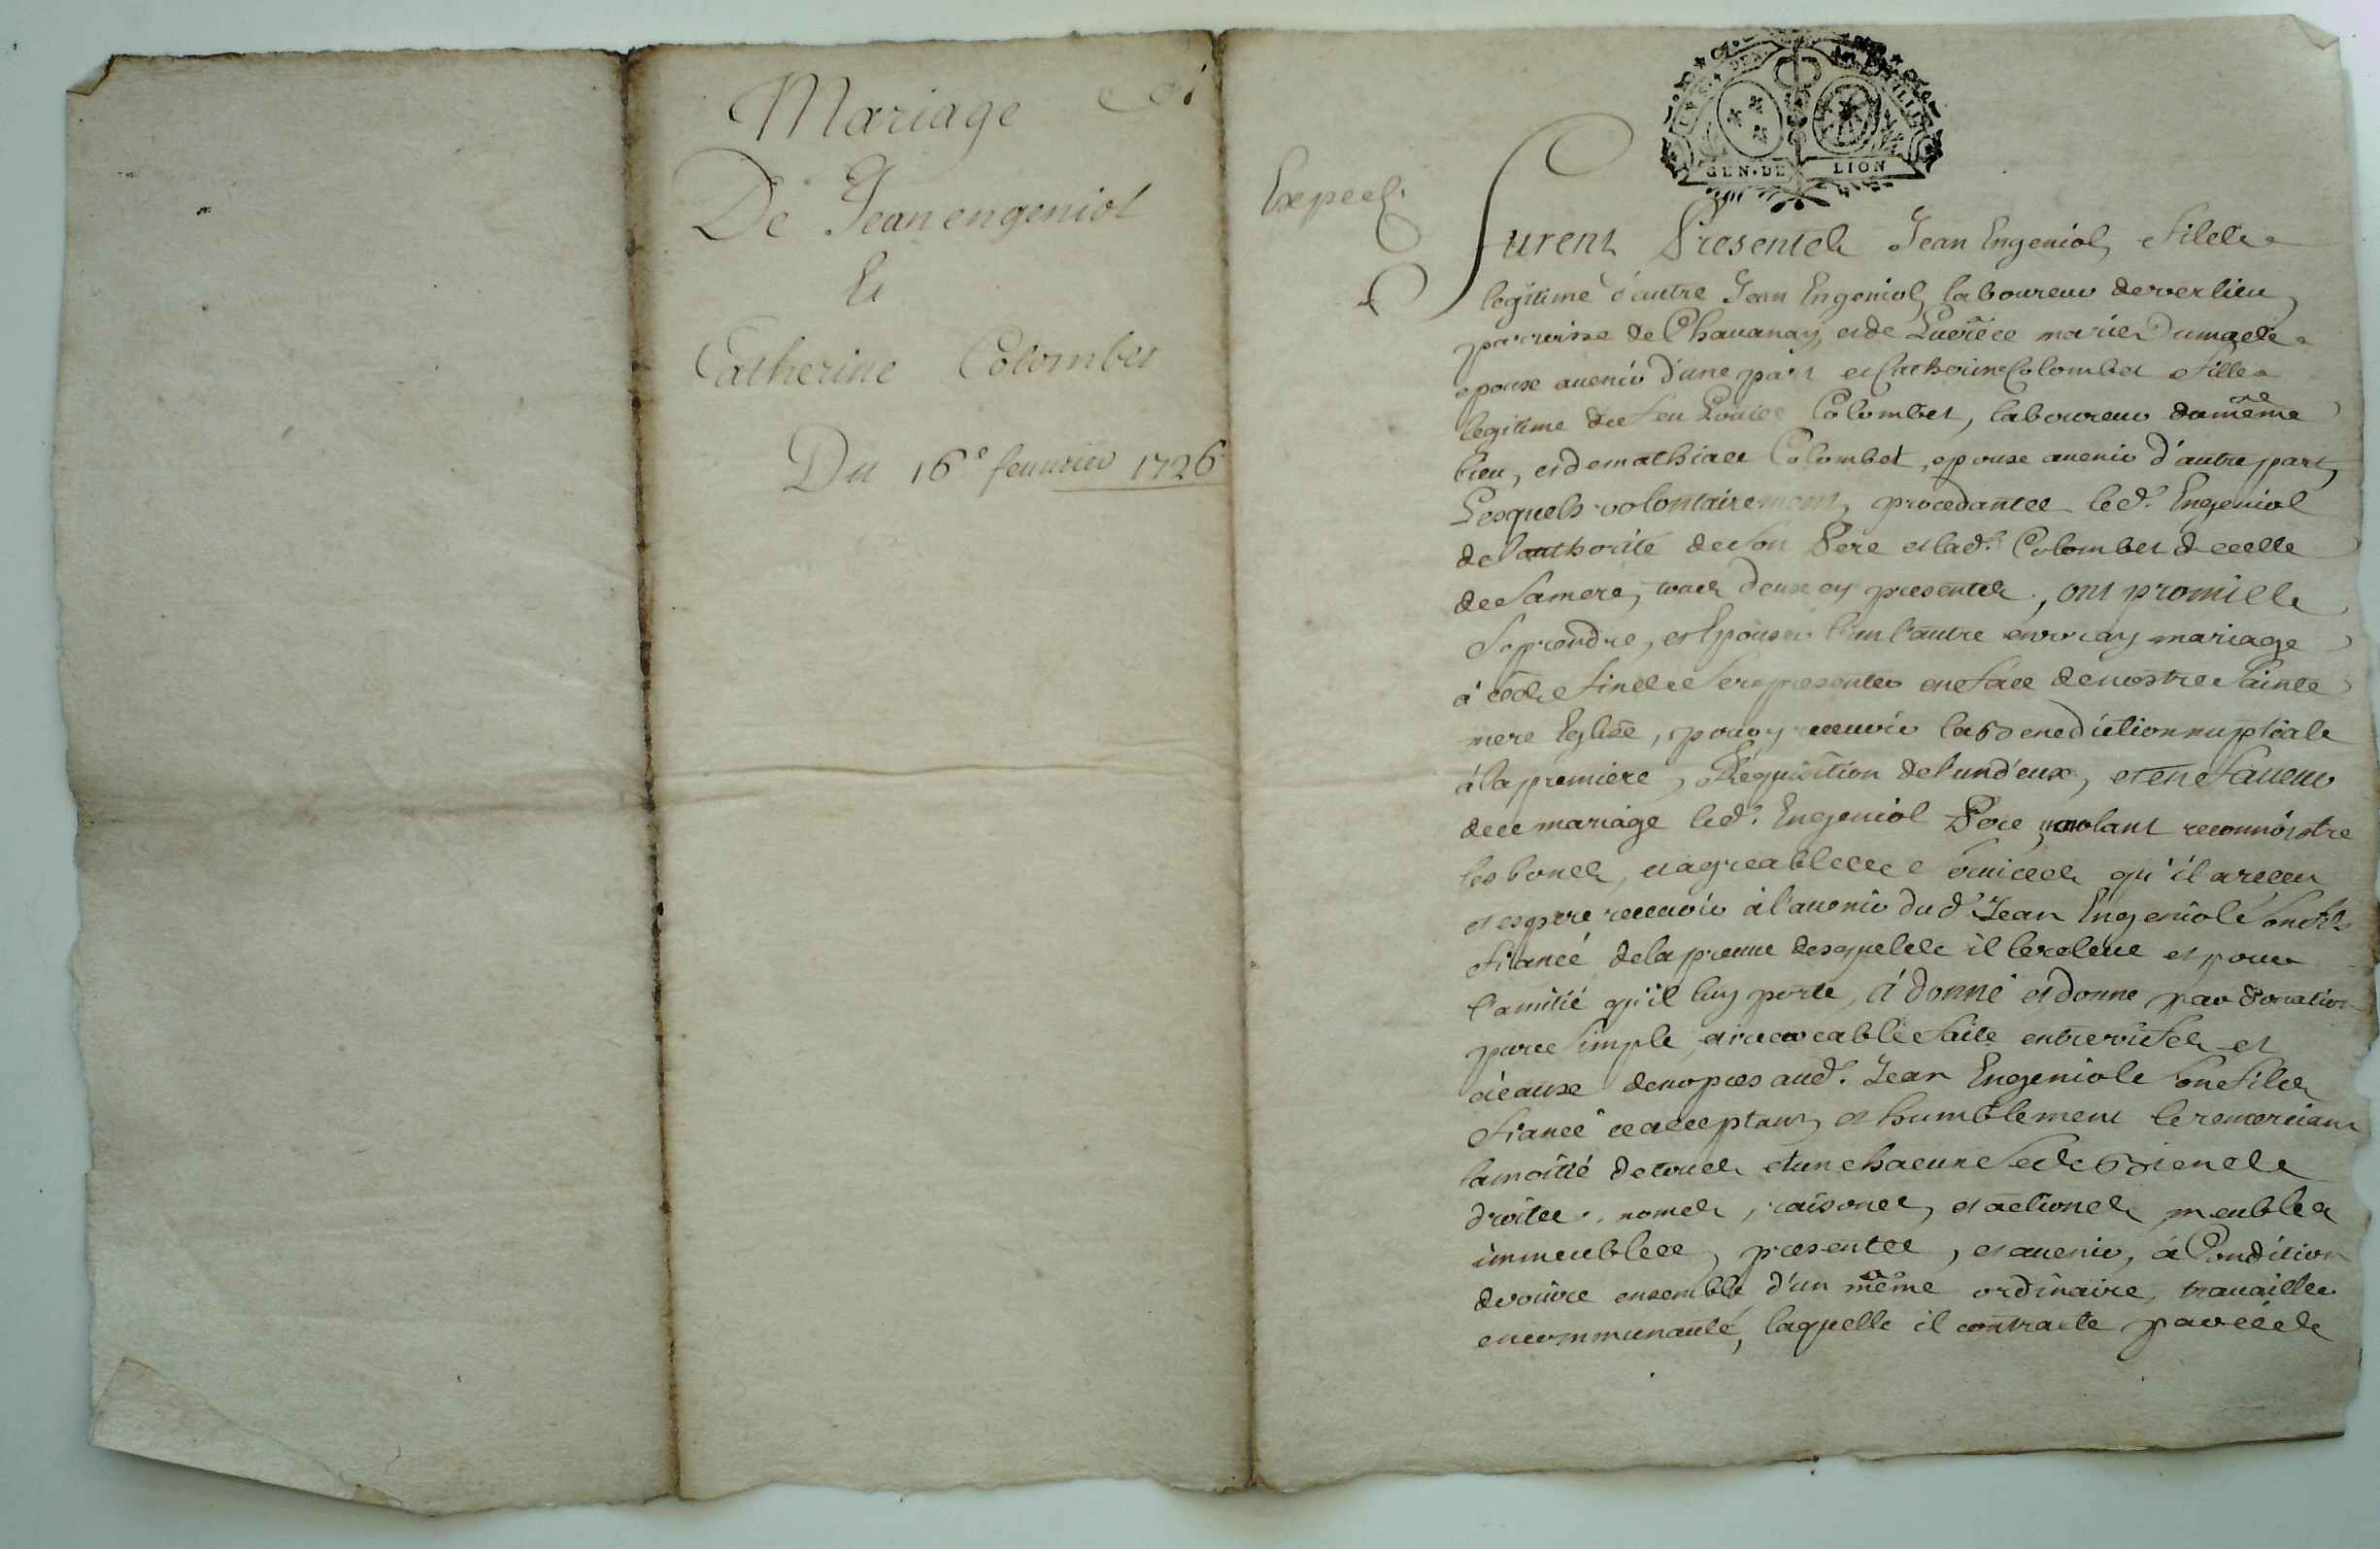 Mariage
De Jean engeniol
Et
Catherine Colombet
Du 16e feuurier 1726
Exped.
GEN. DE LION
furent Presents Jean Engeniol fils
legitime d'autre Jean Engeniol laboureur de verlieu
parroisse de Chauanay, et de marie Dumas
epoux auenir d'une part et Catherine Colombet fille
legitime de feu Louis Colombet, laboureur du même
lieu, et de mathia Colombet, epouse auenir d'autre part,
Lesquels volontairement, procedants led. Engeniol
de l'authorité de son Pere et lad. Colombet de celle
de sa mere, tous deux cy presents, ont promis
se prendre, et Epouser l'un l'autre en vray mariage
à ces fins se representer en face de nostre sainte
mere Eglise, pour y receuoir la benediction nuptiale
à la premiere Requisition de l'un d'eux, et en faueur
de ce mariage led. Engeniol Pere voulant reconnoistre
les bons, et agreables seruices qu'il a receu
et espere receuoir à l'auenir dud. Jean Engeniol son fils
fiancé de la preuue desquels il le releue et pour
l'amitié qu'il luy porte, à donné et donne par donation
pure simple et irreuocable faite entre vifs et
à cause de nopces aud. Jean Engeniol son fils
fiancé acceptant, et humblement le remerciant
la moitié de tous et un chacuns ses biens
droits, noms, raisons, et actions meubles
immeubles, presents, et auenir, à Condition
de viure ensemble d'un même ordinaire, trauailler
en communauté, laquelle il contracte par